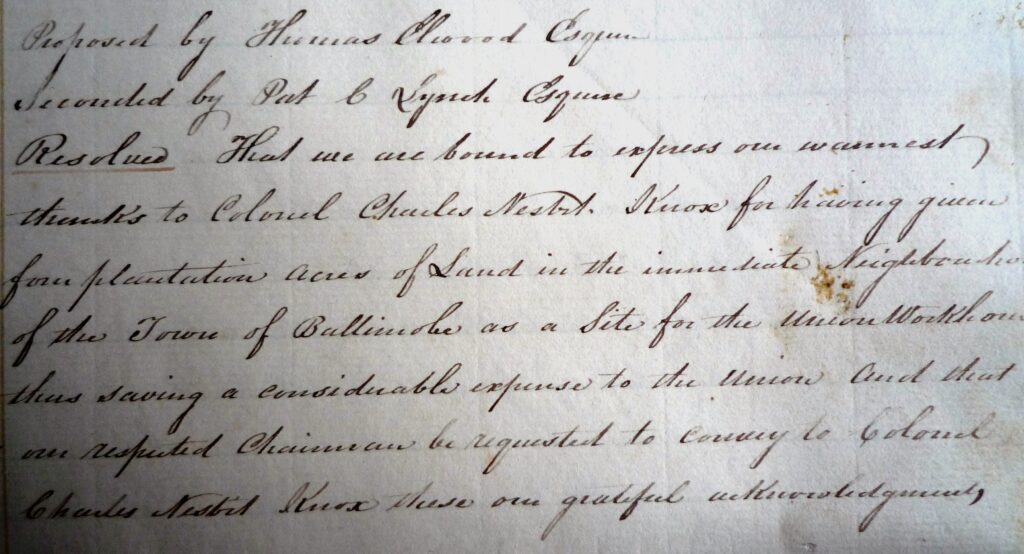 Proposed by Thomas Elwood Esquire
Seconded by Pat C Lynch Esquire
Resolved That we are bound to express our warmest
thanks to Colonel Charles Nesbit. Knox for having given
four plantation acres of Land in the immediate Neighbourho
of the Town of Ballinrobe as a Site for the Union Workhou
thus saving a considerable expense to the Union and that
our respected Chairman be requested to convey to Colonel
Charles Nesbit Knox these our grateful acknowledgments